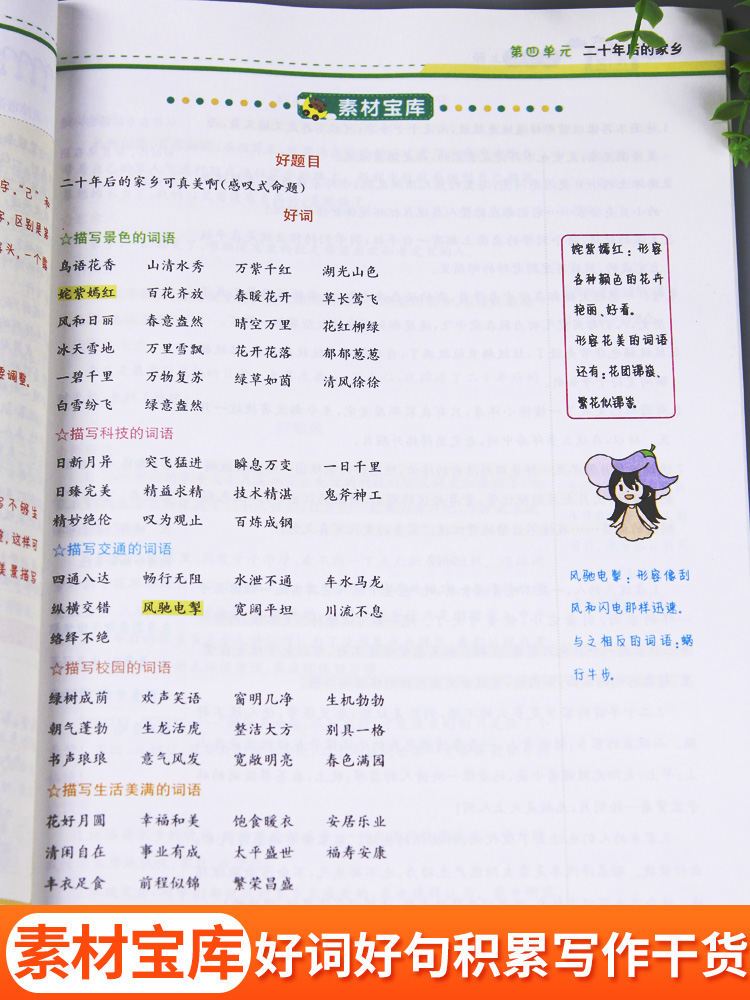 第四单元 二十年后的家乡
素材宝库
好题目
二十年后的家乡可真美啊(感叹式命题)
好词
☆描写景色的词语
鸟语花香 山清水秀 万紫千红 湖光山色
姹紫嫣红 百花齐放 春暖花开 草长莺飞
风和日丽 春意盎然 晴空万里 花红柳绿
冰天雪地 万里雪飘 花开花落 郁郁葱葱
一碧千里 万物复苏 绿草如茵 清风徐徐
白雪纷飞 绿意盎然
☆描写科技的词语
日新月异 突飞猛进 瞬息万变 一日千里
日臻完美 精益求精 技术精湛 鬼斧神工
精妙绝伦 叹为观止 百炼成钢
☆描写交通的词语
四通八达 畅行无阻 水泄不通 车水马龙
纵横交错 风驰电掣 宽阔平坦 川流不息
络绎不绝
☆描写校园的词语
绿树成荫 欢声笑语 窗明几净 生机勃勃
朝气蓬勃 生龙活虎 整洁大方 别具一格
书声琅琅 意气风发 宽敞明亮 春色满园
☆描写生活美满的词语
花好月圆 幸福和美 饱食暖衣 安居乐业
清闲自在 事业有成 太平盛世 福寿安康
丰衣足食 前程似锦 繁荣昌盛
姹紫嫣红:形容
各种颜色的花卉
艳丽、好看。
形容花美的词语
还有:花团锦簇、
繁花似锦。
风驰电掣:形容像刮
风和闪电那样迅速。
与之相反的词语:蜗
行牛步。
字,"己"和
字,区别是
露头,一个露
要调整。
写不够生
这样可
美景描写
素材宝库 好词好句积累写作干货